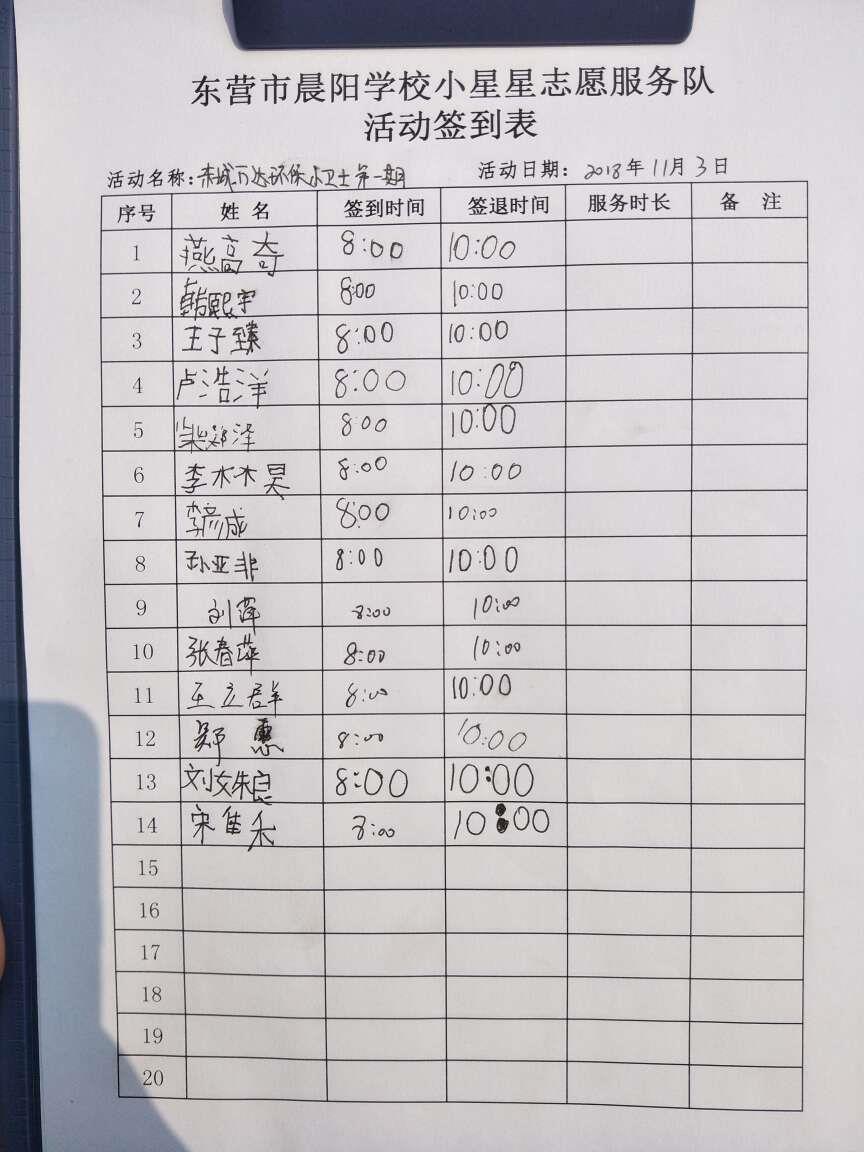 东营市晨阳学校小星星志愿服务队
活动签到表
活动名称:东城万达环保小卫士第一期 活动日期:2018年11月3日
序号 姓名 签到时间 签退时间 服务时长 备 注
1 燕高奇 8:00 10:00
2 韩熙宇 8:00 10:00
3 王子臻 8:00 10:00
4 卢浩洋 8:00 10:00
5 8:00 10:00
6 李木木昊 8:00 10:00
7 李彦成 8:00 10:00
8 孙亚非 8:00 10:00
9 刘萍 8:00 10:00
10 张春萍 8:00 10:00
11 王立群 8:00 10:00
12 郑惠 8:00 10:00
13 刘姝良 8:00 10:00
14 宋佳禾 8:00 10:00
15
16
17
18
19
20